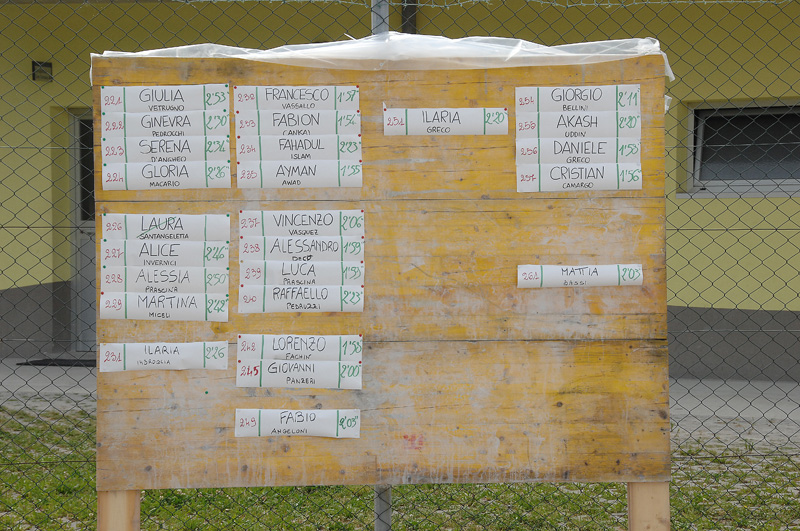 221 GIULIA 2'53"
VETRUGNO
222 GINEVRA 2'30"
PEDROCCHI
223 SERENA 2'34"
D'ANGHEO
224 GLORIA 2'26"
MACARIO
226 LAURA
SANTANGELETTA
227 ALICE 2'46"
INVERNICI
228 ALESSIA 2'50"
PRASCINA
229 MARTINA 2'42"
MICELI
231 ILARIA 2'26
INGROGLIA
232 FRANCESCO 1'57"
VASSALLO
233 FABION 1'54"
CANKAJ
234 FAHADUL 2'23"
ISLAM
235 AYMAN 1'55
AWAD
237 VINCENZO 2'06
VASQUEZ
238 ALESSANDRO 1'59
239 LUCA 1'53
PRASCINA
RAFFAELLO 2'23"
PEDRUZZI
LORENZO 1'58
FACHIN'
245 GIOVANNI 2'00"
PANZERI
249 FABIO 2'05"
ANGELONI
251 ILARIA 2'20"
GRECO
254 GIORGIO 2'11
BELLINI
255 AKASH 2'20"
UDDIN
256 DANIELE 1'58
GRECO
257 CRISTIAN 1'56"
CAMARGO
MATTIA 2'03"
BASSI